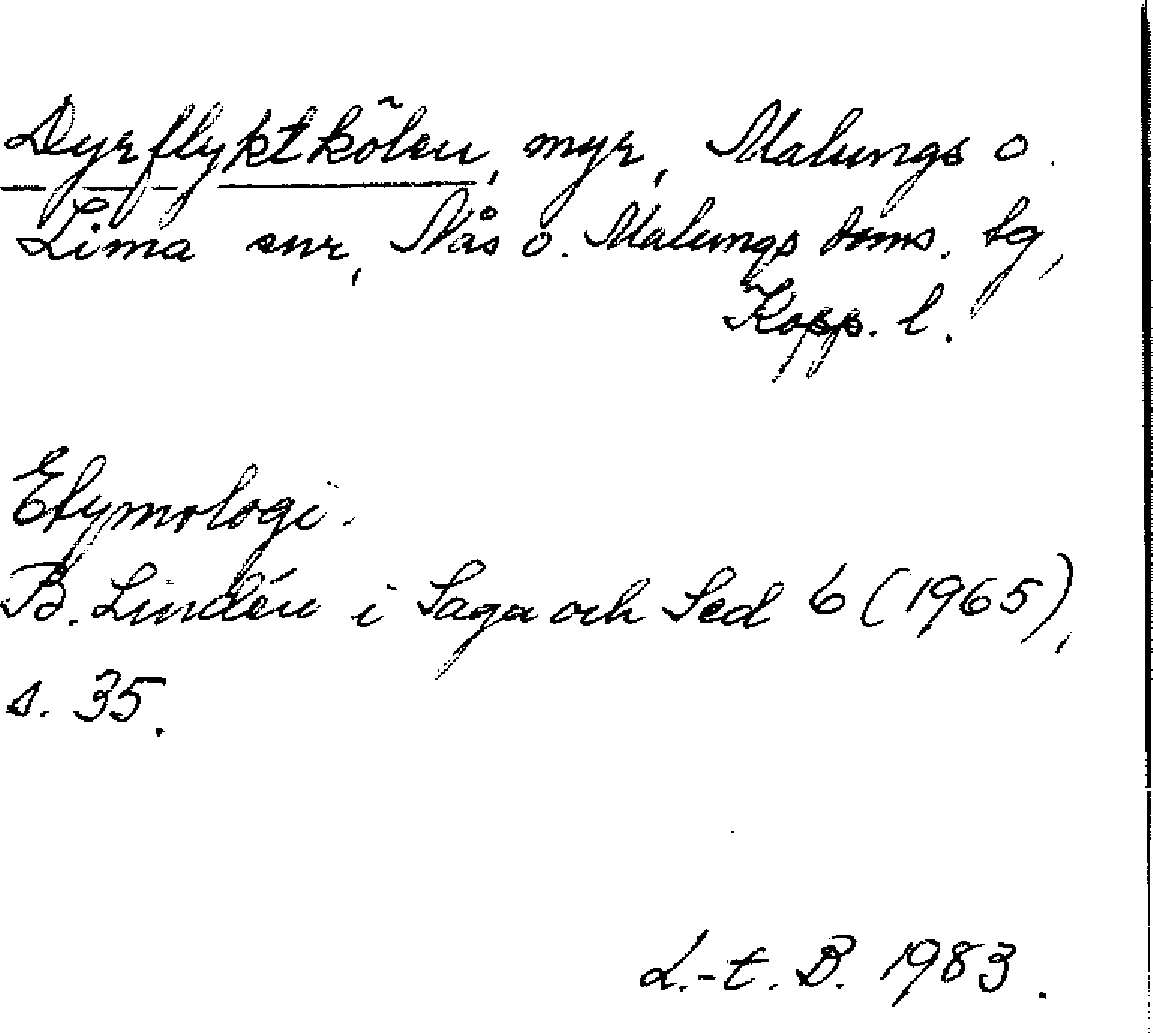 Dyrflyktkölen, myr, Malungs o.
Lima snr, Nås o. Malungs doms. tg,
Kopp. l.
Etymologi.
B. Lindén i Saga och Sed 6 (1965),
s. 35.
L.-t. B. 1983.